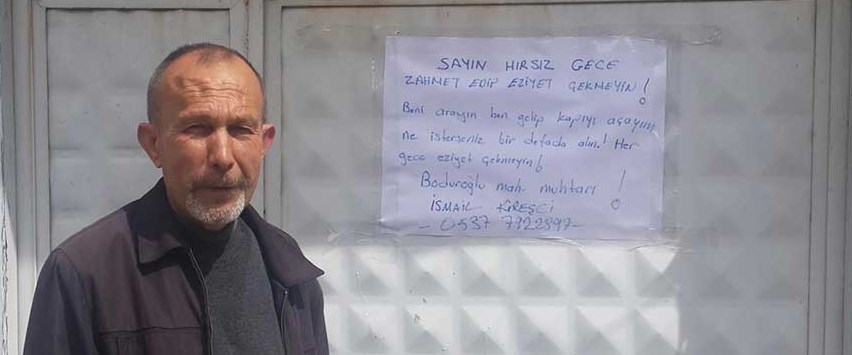 SAYIN HIRSIZ GECE
ZAHMET EDİP EZİYET ÇEKMEYİN!
Beni arayın ben gelip kapıyı açayım
ne isterseniz bir defada alın! Her
gece eziyet çekmeyin!
Boduroğlu mah. muhtarı !
İSMAİL KİREŞCİ
- 0537 7922897-